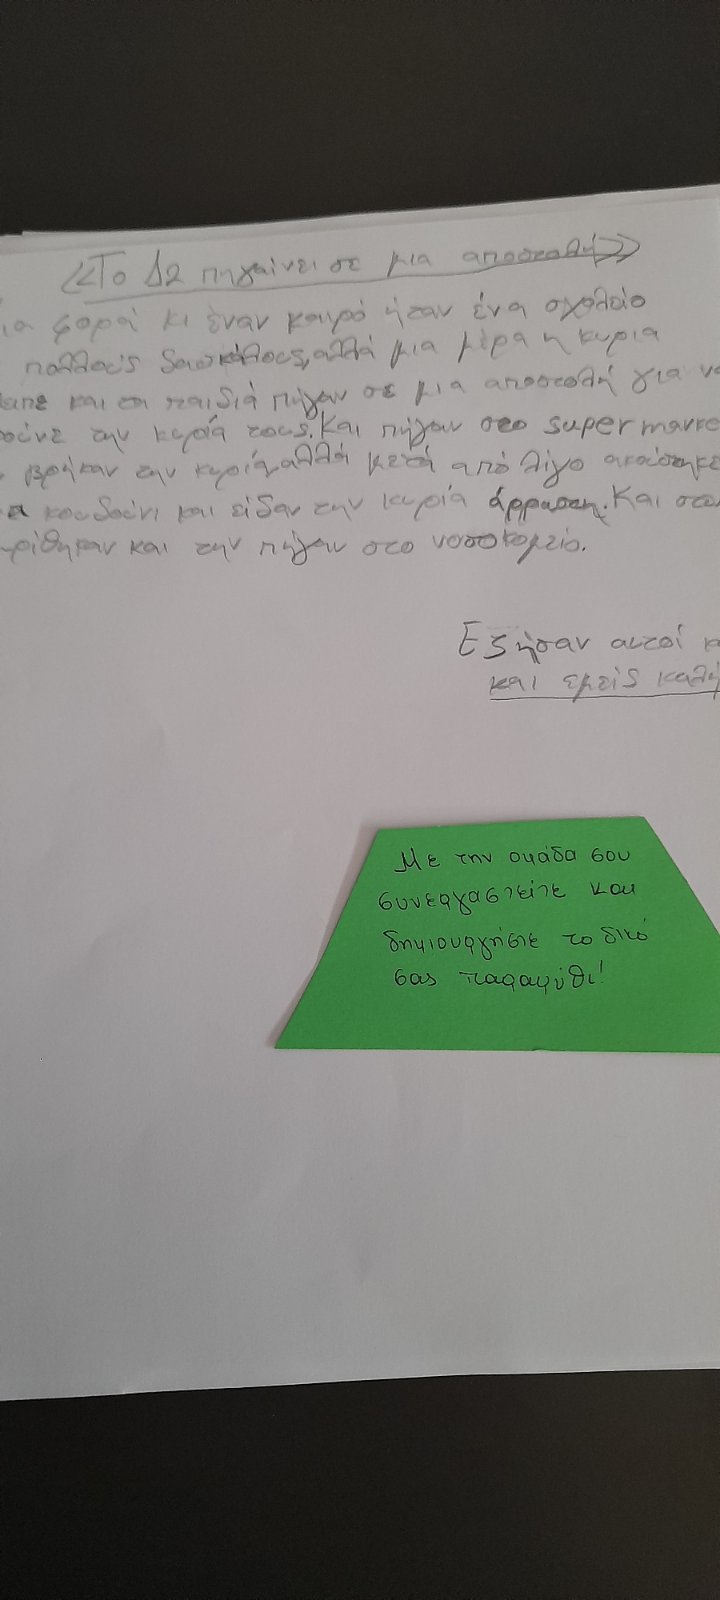 «Το Δ2 πηγαίνει σε μια αποστολή»
ια φορά κι έναν καιρό ήταν ένα σχολείο
πολλούς δασκάλους, αλλά μια μέρα η κυρία
και τα παιδιά πήγαν σε μια αποστολή για ν
την κυρία τους. Και πήγαν στο super marke
βρήκαν την κυρία, αλλά μετά από λίγο ακούστηκε
α κουδούνι και είδαν την κυρία άρρωστη. Και στε
ρίθηκαν και την πήγαν στο νοσοκομείο.
Εζήσαν αυτοί κ
και εμείς καλή
Με την ομάδα σου
συνεργαστείτε και
δημιουργήστε το δικό
σας παραμύθι!